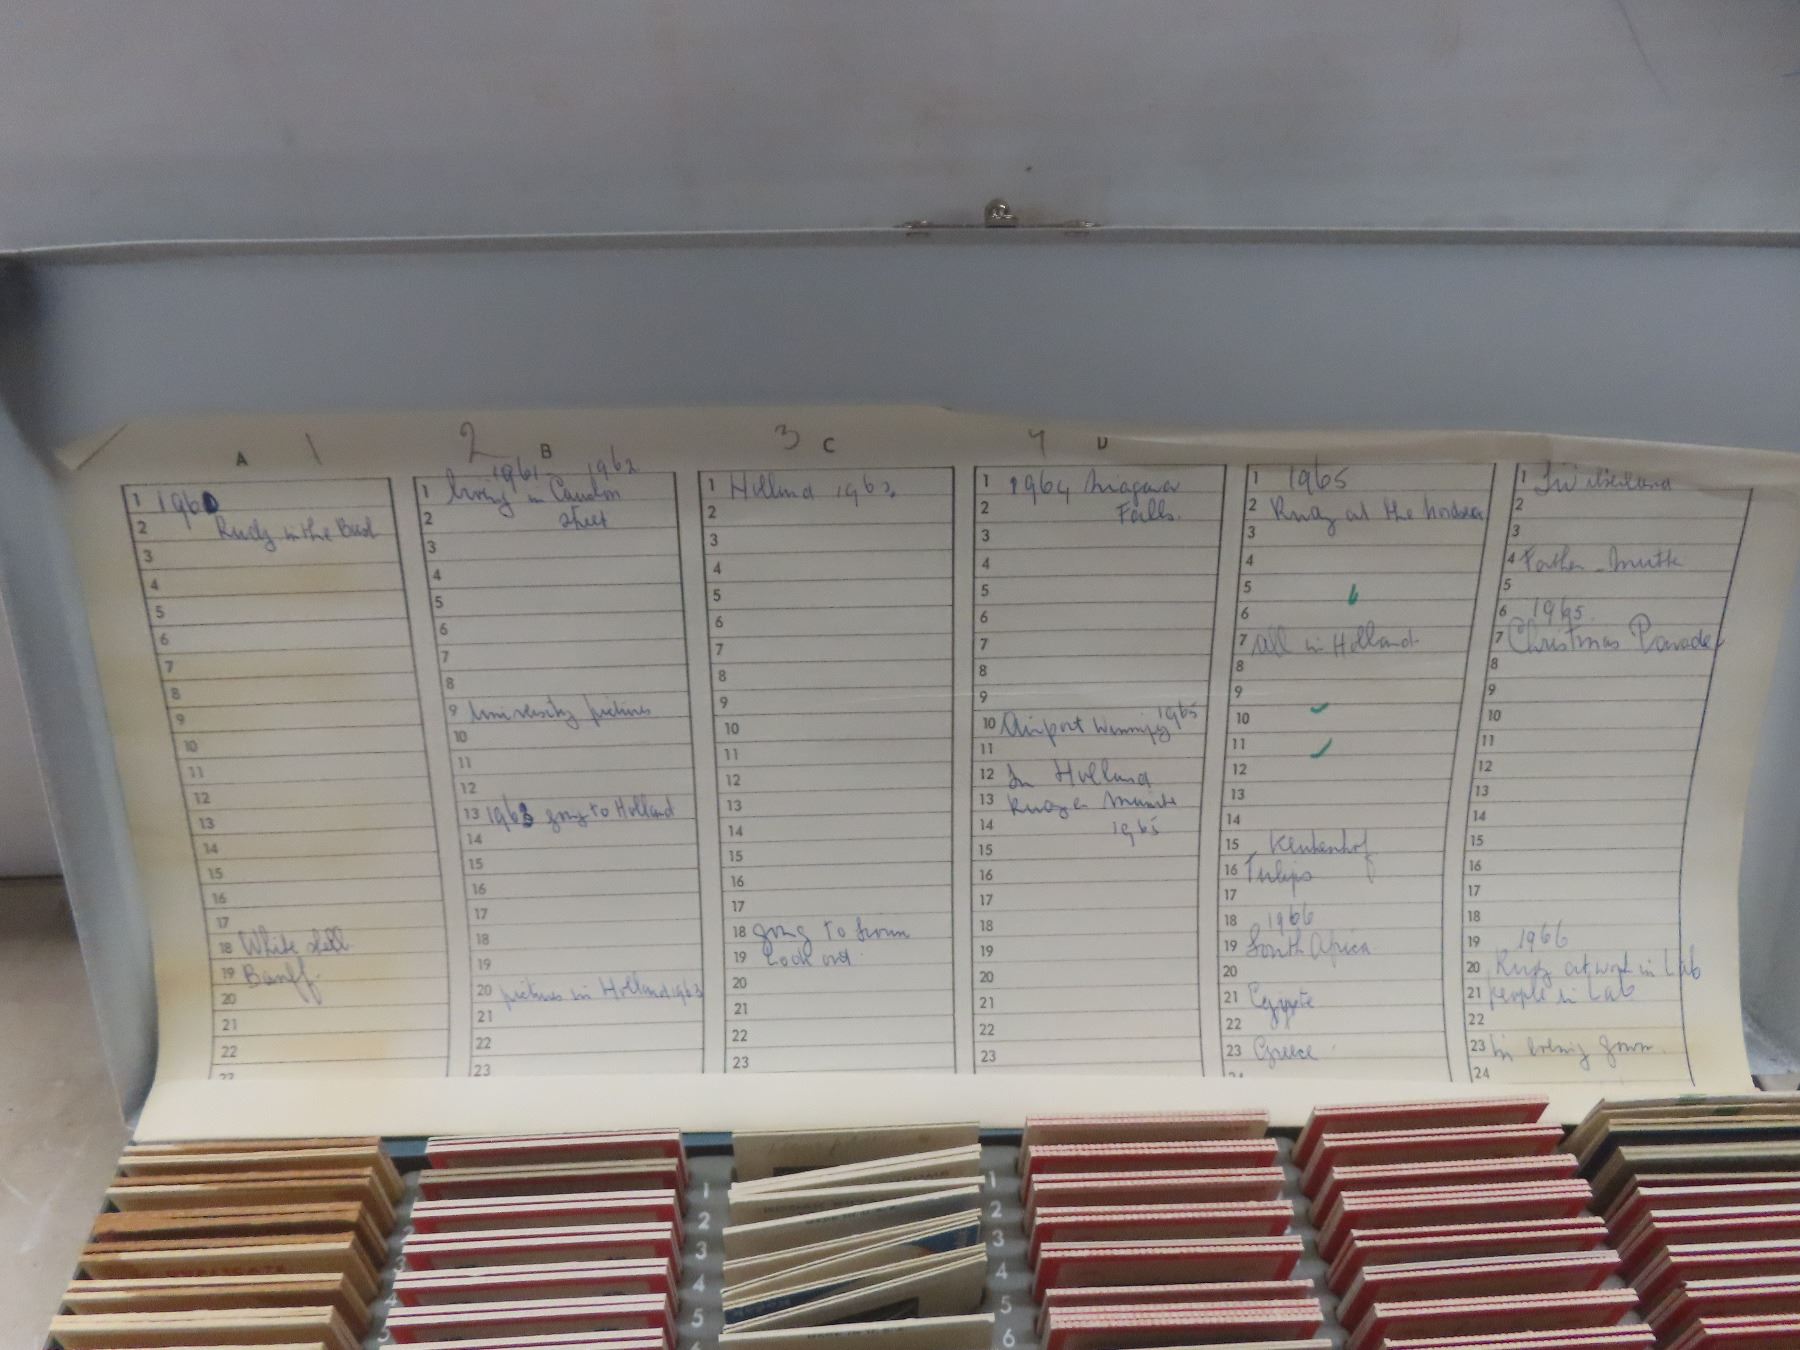 A 1
1 1960
2 Rudy in the Bush
3
4
5
6
7
8
9
10
11
12
13
14
15
16
17
18 White shell
19 Banff.
20
21
22
2 B
1961 - 1962
1 living in
2 street
3
4
5
6
7
8
9 University pictures
10
11
12
13 1963 going to Holland
14
15
16
17
18
19
20 pictures in Holland 1963
21
22
23
3 C
1 Holland 1963
2
3
4
5
6
7
8
9
10
11
12
13
14
15
16
17
18 going to
19 Look out
20
21
22
23
4 D
1 1964 Niagara
2 Falls.
3
4
5
6
7
8
9
10 Airport Winnipeg 1965
11
12 In Holland
13
14 1965
15
16
17
18
19
20
21
22
23
1 1965
2 Rudy at the
3
4
5
6
7 all in Holland
8
9
10
11
12
13
14
15 Keukenhof
16 Tulips
17
18 1966
19 South Africa
20
21 Egypte
22
23 Greece
1
2
3
4 Father -
5
6 1965.
7 Christmas Parade
8
9
10
11
12
13
14
15
16
17
18
19 1966
20 Rudy at work in Lab
21 people in Lab
22
23 in evening gown.
24
1
2
3
4
5
1
2
3
4
5
6